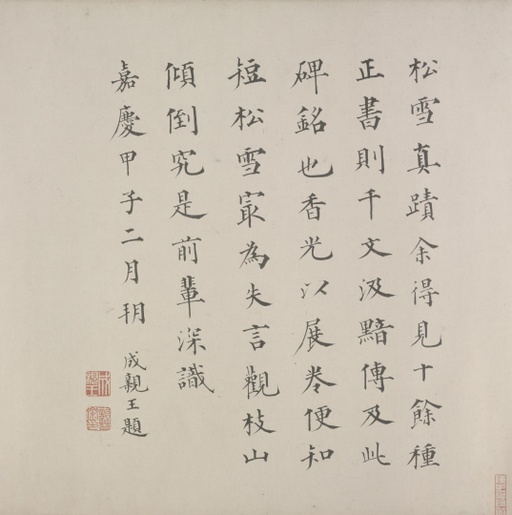 松雪真蹟余得見十餘種
正書則千文汲黯傳及此
碑銘也香光以展卷便知
短松雪㝡為失言觀枝山
傾倒究是前輩深識
嘉慶甲子二月朔
成親王題